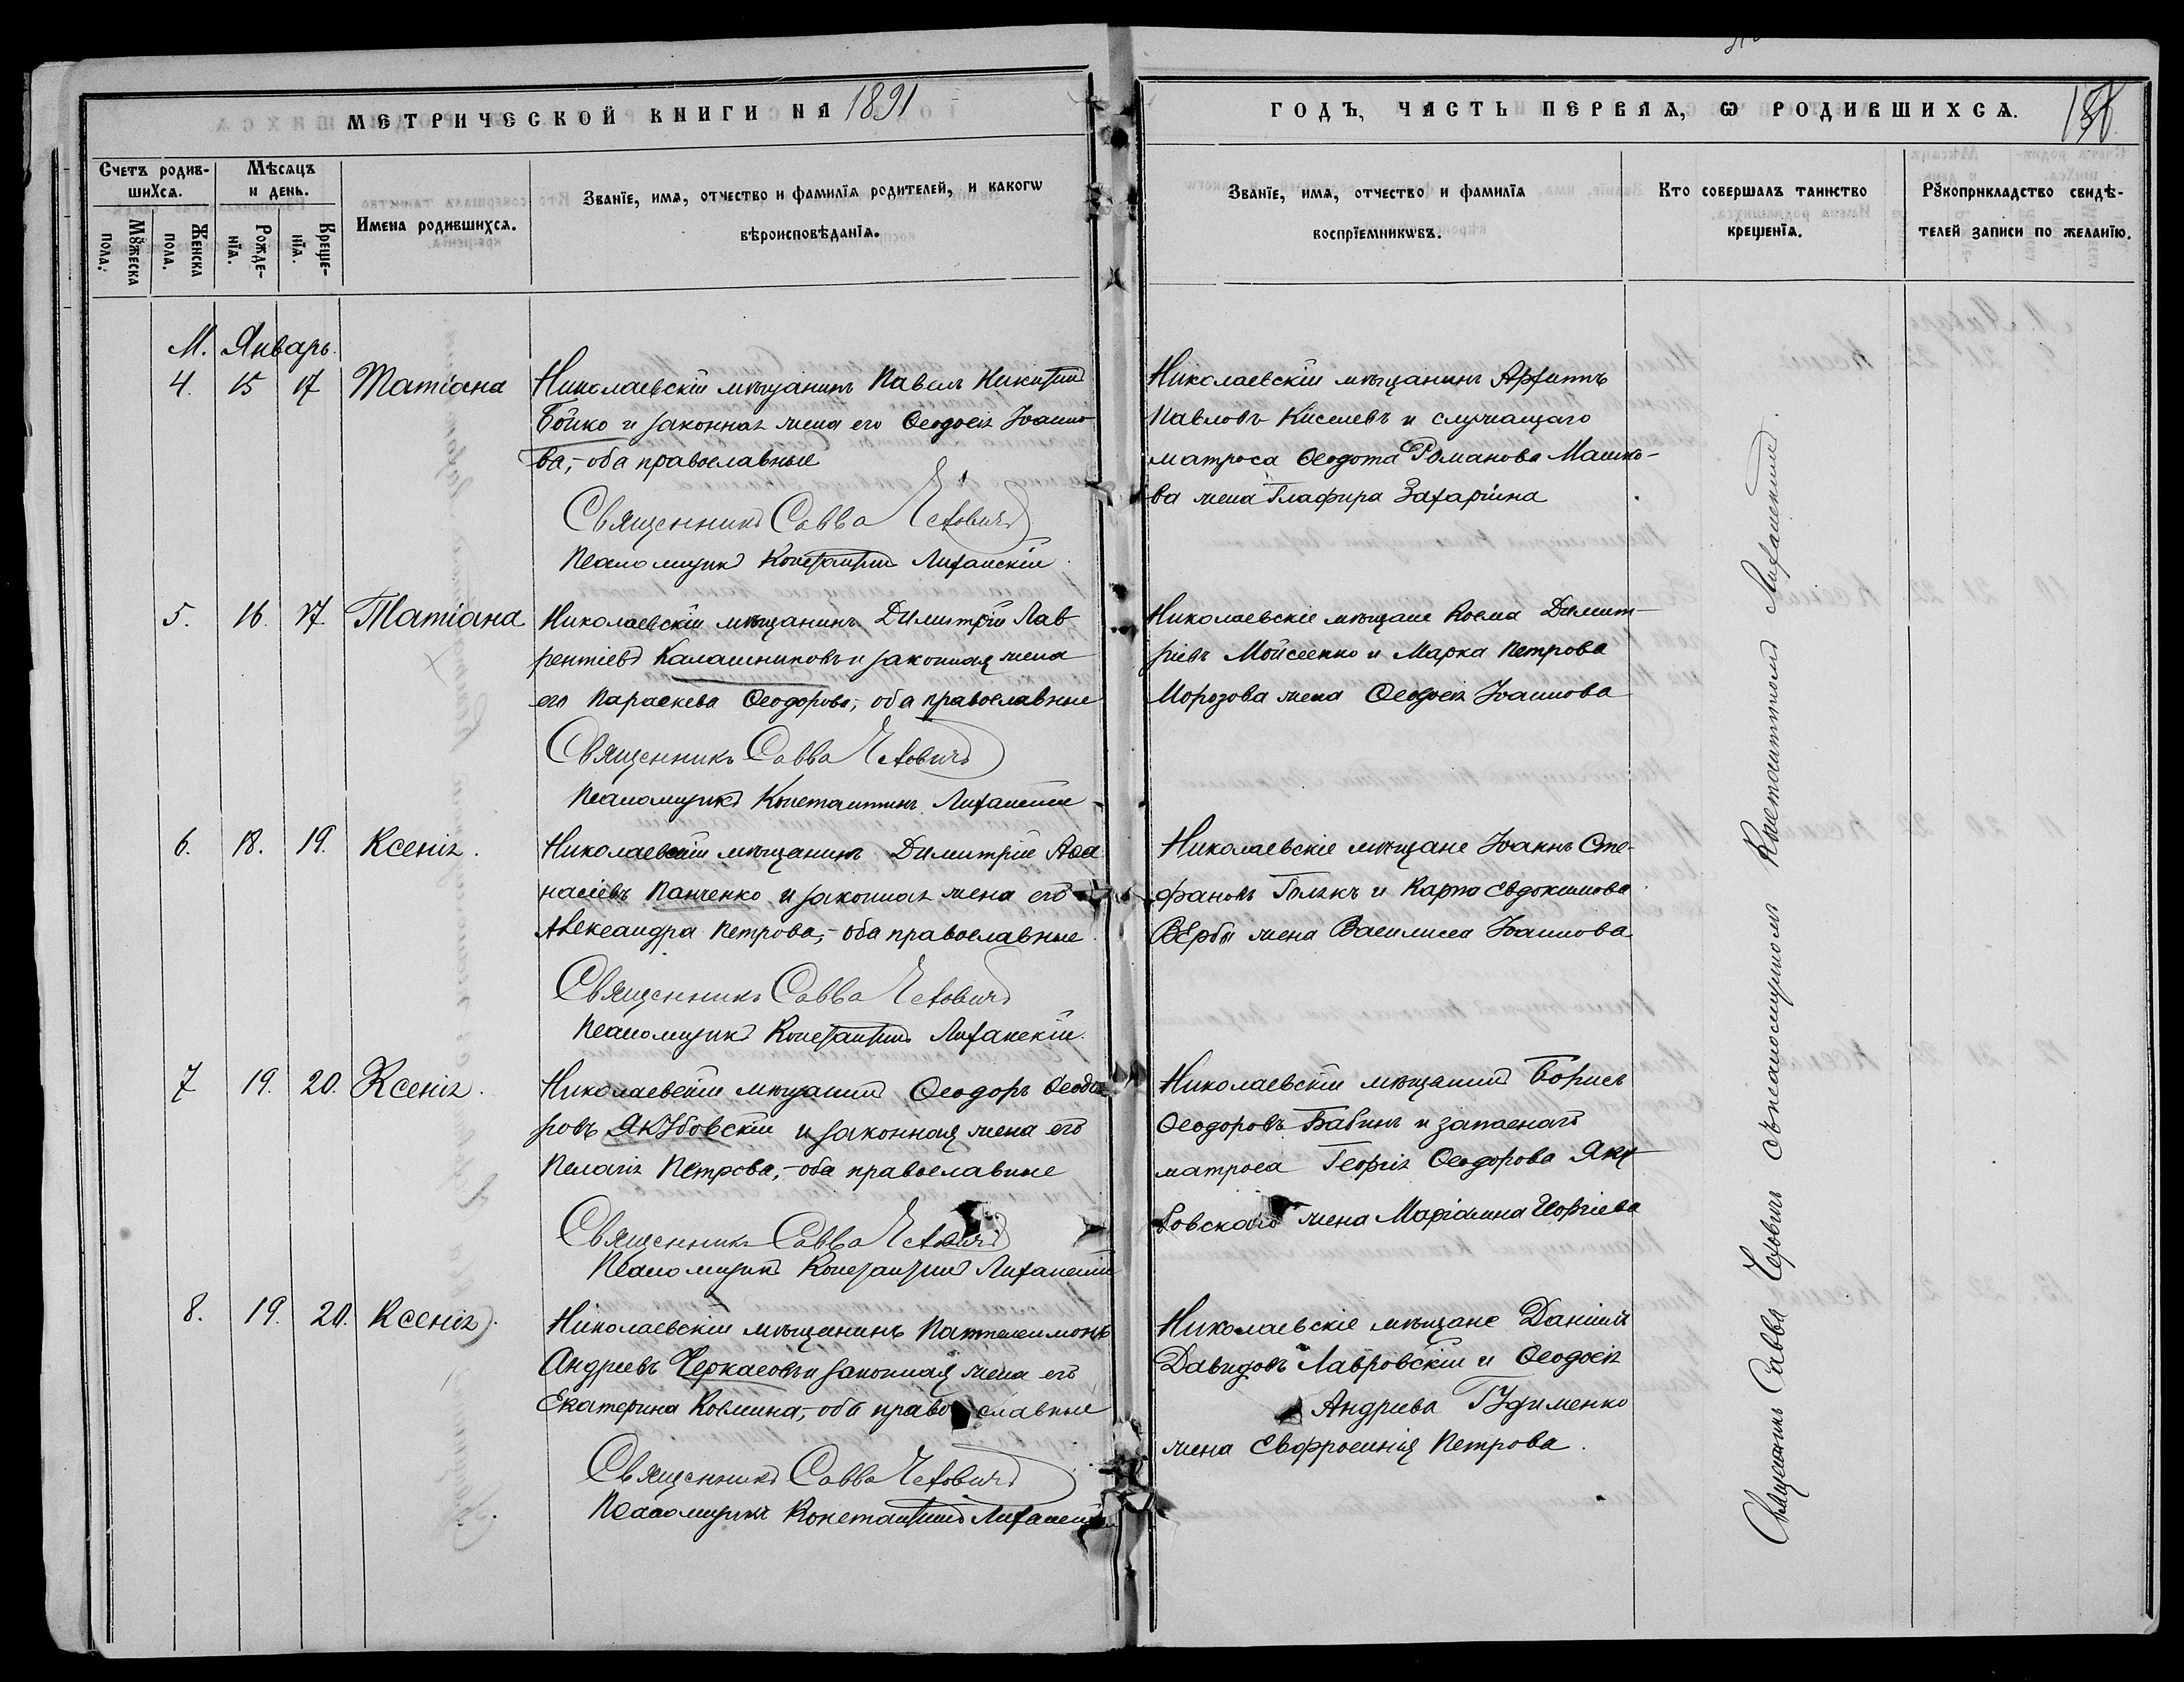 МЕТРИЧЕСКОЙ КНИГИ НА 1891
ГОДЪ, ЧАСТЬ ПЕРВАЯ, Ѡ РОДИВШИХСѦ.
Счетъ родив-
шихсѧ.
Мѣсѧцъ
и день.
Мꙋжеска
пола.
Женска
пола.
Рожде-
нїѧ.
Креще-
нїѧ.
Имена родившихсѧ.
Званїе, имѧ, отчество и фамилїѧ родителей, и какогѡ
вѣроисповѣданїѧ.
Званїе, имѧ, отчество и фамилїѧ
воспрїемникѡвъ.
Кто совершалъ таинство
крещенїѧ.
Рꙋкоприкладство свидѣ-
телей записи по желанїю.
М. Январь.
4. 15 17 Татіана
Николаевскій мѣщанинъ Павелъ Никитинъ
Бойко и законная жена его Ѳеодосія Іоанно
ва, - оба православные
Священникъ Савва Чехович
Псаломщикъ Константинъ Лиханскій
Николаевскій мѣщанинъ
Павловъ Киселевъ и служащаго
матроса Ѳеодота Романова Машко-
ва жена Глафира Захаріина
5. 16. 17. Татіана
Николаевскій мѣщанинъ Димитрій Лав
рентіевъ Калашниковъ и законная жена
его Параскева Ѳеодорова, - оба православные
Священникъ Савва Чехович
Псаломщикъ Константинъ Лиханскій
Николаевскіе мѣщане Косма Димит-
ріевъ Мойсеенко и Марка Петрова
Морозова жена Ѳеодосія Іоаннова
6. 18. 19. Ксенія.
Николаевскій мѣщанинъ Димитрій Аѳа
насіевъ Панченко и законная жена его
Александра Петрова, - оба православные.
Священникъ Савва Чехович
Псаломщикъ Константинъ Лиханскій.
Николаевскіе мѣщане Іоаннъ Сте-
фановъ и Карпа Евдокимова
Вербы жена Василиса Іоаннова
7 19. 20. Ксенія.
Николаевскій мѣщанинъ Ѳеодоръ Ѳеодо
ровъ Якубовскій и законная жена его
Пелагія Петрова, - оба православные
Священникъ Савва Чехович
Псаломщикъ Константинъ Лиханскій
Николаевскій мѣщанинъ Борисъ
Ѳеодоровъ Бабинъ и запаснаго
матроса Георгія Ѳеодорова Яку
бовскаго жена Маріамна Георгіева
8. 19. 20. Ксенія.
Николаевскій мѣщанинъ Пантелеимонъ
Андреевъ Черкасовъ и законная жена его
Екатерина Космина, - оба православные
Священникъ Савва Чехович
Псаломщикъ Константинъ Лиханскій
Николаевскіе мѣщане Даніилъ
Давидовъ Лавровскій и Ѳеодосія
Андреева Гудименко
жена Евфросинія Петрова.
Священникъ Савва Чехович съ псаломщикомъ Константиномъ Лиханскимъ.